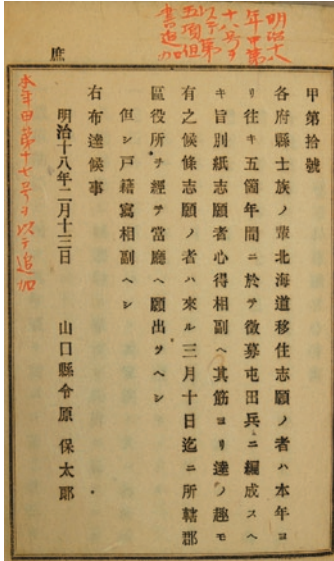 明治十八
年甲第
十八号ヲ
以テ第
五項但
書追加
庶
甲第拾號
各府縣士族ノ輩北海道移住志願ノ者ハ本年ヨ
リ往キ五箇年間ニ於テ徴募屯田兵ニ編成スヘ
キ旨別紙志願者心得相副ヘ其筋ヨリ達ノ趣モ
有之候條志願ノ者ハ來ル三月十日迄ニ所轄郡
區役所ヲ經テ當廳ヘ願出ツヘシ
但シ戸籍寫相副ヘシ
右布達候事
明治十八年二月十三日
山口縣令原保太郎
本年甲第十七号ヲ以テ追加